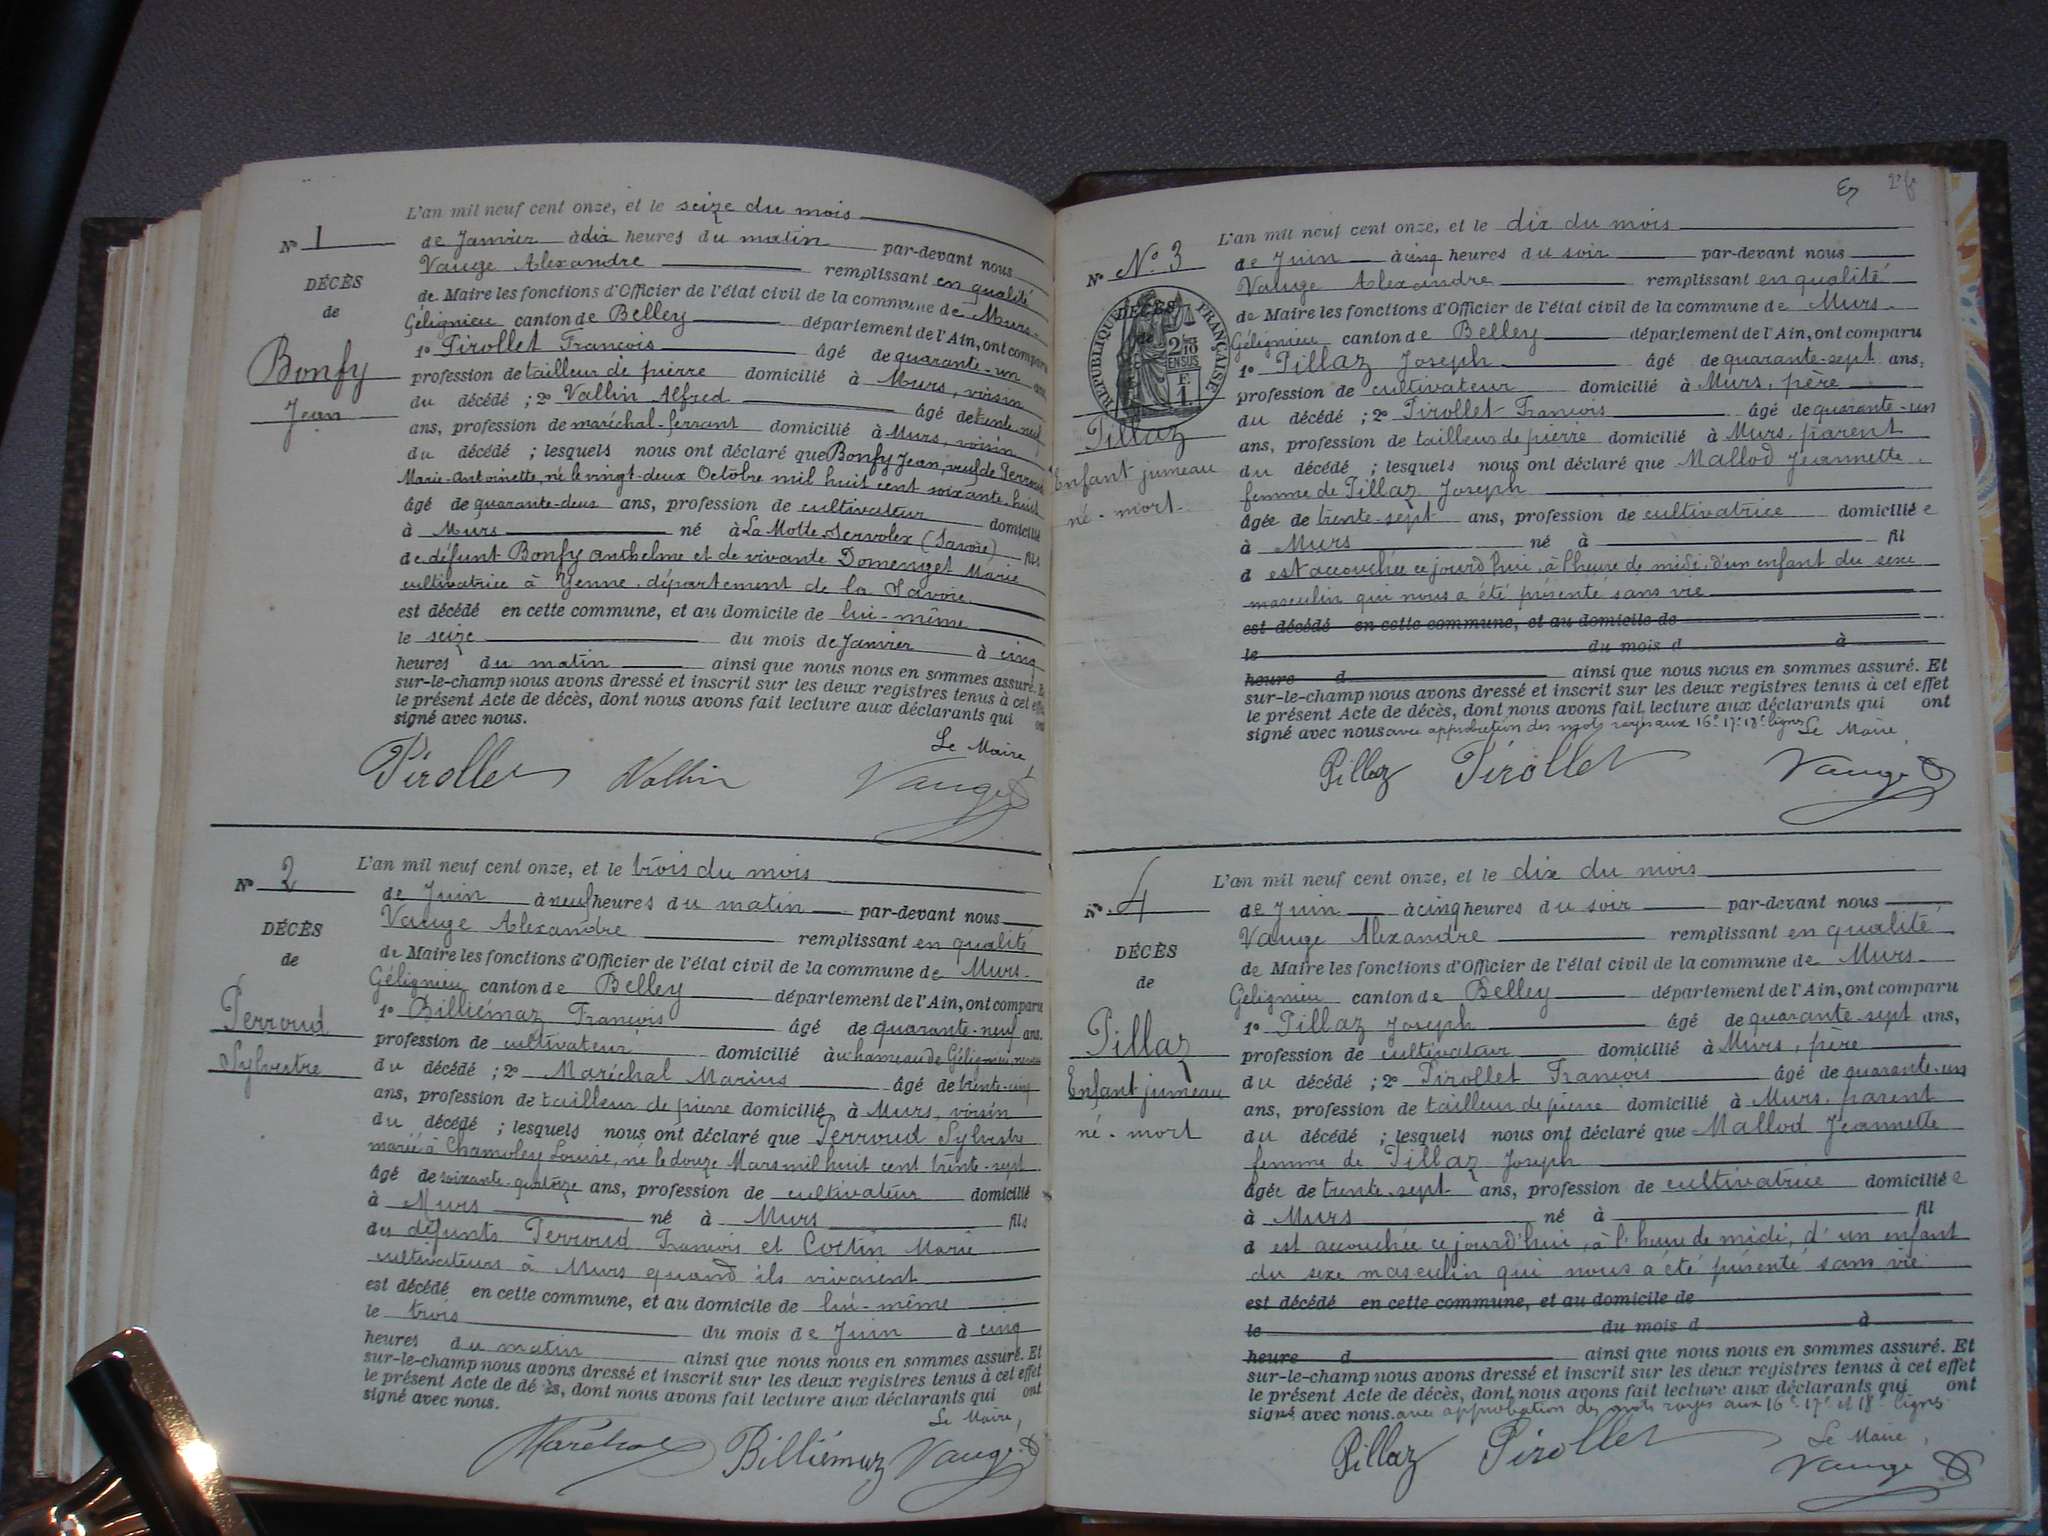 L'an mil neuf cent onze, et le seize du mois
No 1
de Janvier à dix heures du matin par-devant nous
Vauge Alexandre remplissant en qualité
DÉCÈS
de Maire les fonctions d'Officier de l'état civil de la commune de Murs-
de
Gélignieu canton de Belley département de l'Ain, ont comparu
1o Pirollet François âgé de quarante-un ans,
Bonfy
profession de tailleur de pierre domicilié à Murs, voisin
Jean
du décédé ; 2o Vallin Alfred âgé de trente-neuf
ans, profession de maréchal-ferrant domicilié à Murs, voisin
du décédé ; lesquels nous ont déclaré que Bonfy Jean, veuf de Perroud
Marie-Antoinette, né le vingt-deux Octobre mil huit cent soixante-huit
âgé de quarante-deux ans, profession de cultivateur domicilié
à Murs né à La Motte-Servolex (Savoie) fils
de défunt Bonfy anthelme et de vivante Domenget Marie
cultivatrice à Yenne, département de la Savoie
est décédé en cette commune, et au domicile de lui-même
le seize du mois de Janvier à cinq
heures du matin ainsi que nous nous en sommes assuré. Et
sur-le-champ nous avons dressé et inscrit sur les deux registres tenus à cet effet
le présent Acte de décès, dont nous avons fait lecture aux déclarants qui ont
signé avec nous.
Le Maire,
Pirollet Vallin Vauge
L'an mil neuf cent onze, et le trois du mois
No 2
de Juin à neuf heures du matin par-devant nous
Vauge Alexandre remplissant en qualité
DÉCÈS
de Maire les fonctions d'Officier de l'état civil de la commune de Murs-
de
Gélignieu canton de Belley département de l'Ain, ont comparu
Perroud
1o Billiémaz François âgé de quarante-neuf ans,
profession de cultivateur domicilié à u hameau de Gélignieu, neveu
Sylvestre
du décédé ; 2o Maréchal Marius âgé de trente-cinq
ans, profession de tailleur de pierre domicilié à Murs, voisin
du décédé ; lesquels nous ont déclaré que Perroud Sylvestre
marié à Chamoley Louise, né le douze Mars mil huit cent trente-sept
âgé de soixante-quatorze ans, profession de cultivateur domicilié
à Murs né à Murs fils
des défunts Perroud François et Cottin Marie
cultivateurs à Murs quand ils vivaient
est décédé en cette commune, et au domicile de lui-même
le trois du mois de Juin à cinq
heures du matin ainsi que nous nous en sommes assuré. Et
sur-le-champ nous avons dressé et inscrit sur les deux registres tenus à cet effet
le présent Acte de décès, dont nous avons fait lecture aux déclarants qui ont
signé avec nous.
Le Maire,
Maréchal Billiémaz Vauge
L'an mil neuf cent onze, et le dix du mois
No No 3
de Juin à cinq heures du soir par-devant nous
Vauge Alexandre remplissant en qualité
DÉCÈS
de
RÉPUBLIQUE FRANÇAISE
2/10 EN SUS
de Maire les fonctions d'Officier de l'état civil de la commune de Murs-
Gélignieu canton de Belley département de l'Ain, ont comparu
1o Pillaz Joseph âgé de quarante-sept ans,
profession de cultivateur domicilié à Murs, père
Pillaz
du décédé ; 2o Pirollet François âgé de quarante-un
Enfant jumeau
ans, profession de tailleur de pierre domicilié à Murs, parent
du décédé ; lesquels nous ont déclaré que Mallod Jeannette,
né-mort
femme de Pillaz Joseph
âgée de trente-sept ans, profession de cultivatrice domiciliée
à Murs né à fil
d est accouchée ce jourd'hui, à l'heure de midi, d'un enfant du sexe
masculin qui nous a été présenté sans vie
est décédé en cette commune, et au domicile de
le du mois d à
heure d ainsi que nous nous en sommes assuré. Et
sur-le-champ nous avons dressé et inscrit sur les deux registres tenus à cet effet
le présent Acte de décès, dont nous avons fait lecture aux déclarants qui ont
signé avec nous avec approbation des mots rayés aux 16e 17e 18e lignes
Le Maire,
Pillaz Pirollet Vauge
L'an mil neuf cent onze, et le dix du mois
No 4
de Juin à cinq heures du soir par-devant nous
Vauge Alexandre remplissant en qualité
DÉCÈS
de Maire les fonctions d'Officier de l'état civil de la commune de Murs-
de
Gélignieu canton de Belley département de l'Ain, ont comparu
1o Pillaz Joseph âgé de quarante-sept ans,
Pillaz
profession de cultivateur domicilié à Murs, père
du décédé ; 2o Pirollet François âgé de quarante-un
Enfant jumeau
ans, profession de tailleur de pierre domicilié à Murs, parent
né-mort
du décédé ; lesquels nous ont déclaré que Mallod Jeannette
femme de Pillaz Joseph
âgée de trente-sept ans, profession de cultivatrice domiciliée
à Murs né à fil
d est accouchée ce jourd'hui, à l'heure de midi, d'un enfant
du sexe masculin qui nous a été présenté sans vie
est décédé en cette commune, et au domicile de
le du mois d à
heure d ainsi que nous nous en sommes assuré. Et
sur-le-champ nous avons dressé et inscrit sur les deux registres tenus à cet effet
le présent Acte de décès, dont nous avons fait lecture aux déclarants qui ont
signé avec nous. avec approbation des mots rayés aux 16e 17e et 18e lignes
Le Maire,
Pillaz Pirollet Vauge